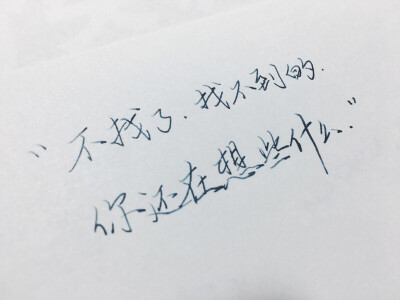 "不找了.找不到的.
你还在想些什么."